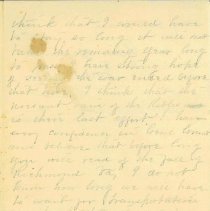 think that I would have
to stay so long it will not
take the remaining year long
to I have strong hope
of seeing the war ended before
that now. I think that the
present raid of the Rebs
is their last effort. I have
every confidence in
and believe that before long
you will read of the fall of
Richmond. I do not
know how long we will have
to wait for Transportation